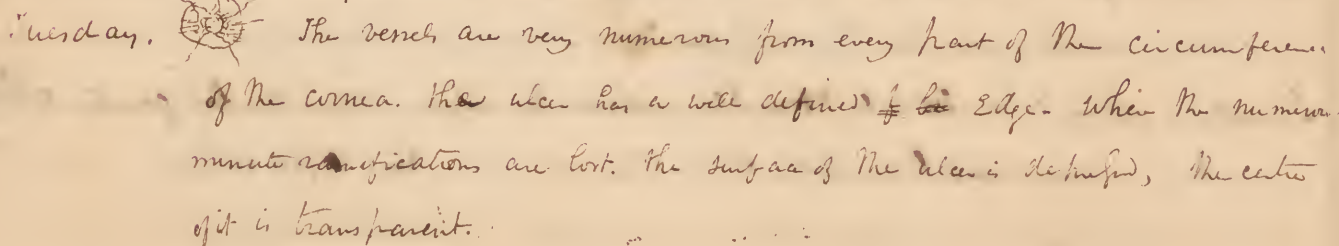 Tuesday. The vessels are very numerous from every part of the circumference
of the cornea. the ulcer has a well defined Edge - where the numerous
minute ramifications are lost. the surface of the ulcer is, the centre
of it is transparent.